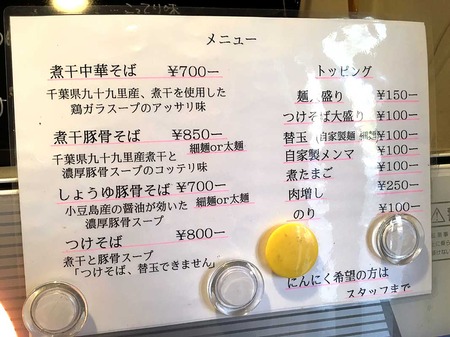 こってり味
メニュー
煮干中華そば ¥700ー
千葉県九十九里産、煮干を使用した
鶏ガラスープのアッサリ味
煮干豚骨そば ¥850ー
細麺or太麺
千葉県九十九里産煮干と
濃厚豚骨スープのコッテリ味
しょうゆ豚骨そば ¥700ー
小豆島産の醤油が効いた 細麺or太麺
濃厚豚骨スープ
つけそば ¥800ー
煮干と豚骨スープ
「つけそば、替玉できません」
トッピング
麺大盛り ¥150ー
つけそば大盛り ¥100ー
替玉 (自家製麺 細麺) ¥100ー
自家製メンマ ¥100ー
煮たまご ¥100ー
肉増し ¥250ー
のり ¥100ー
にんにく希望の方は
スタッフまで